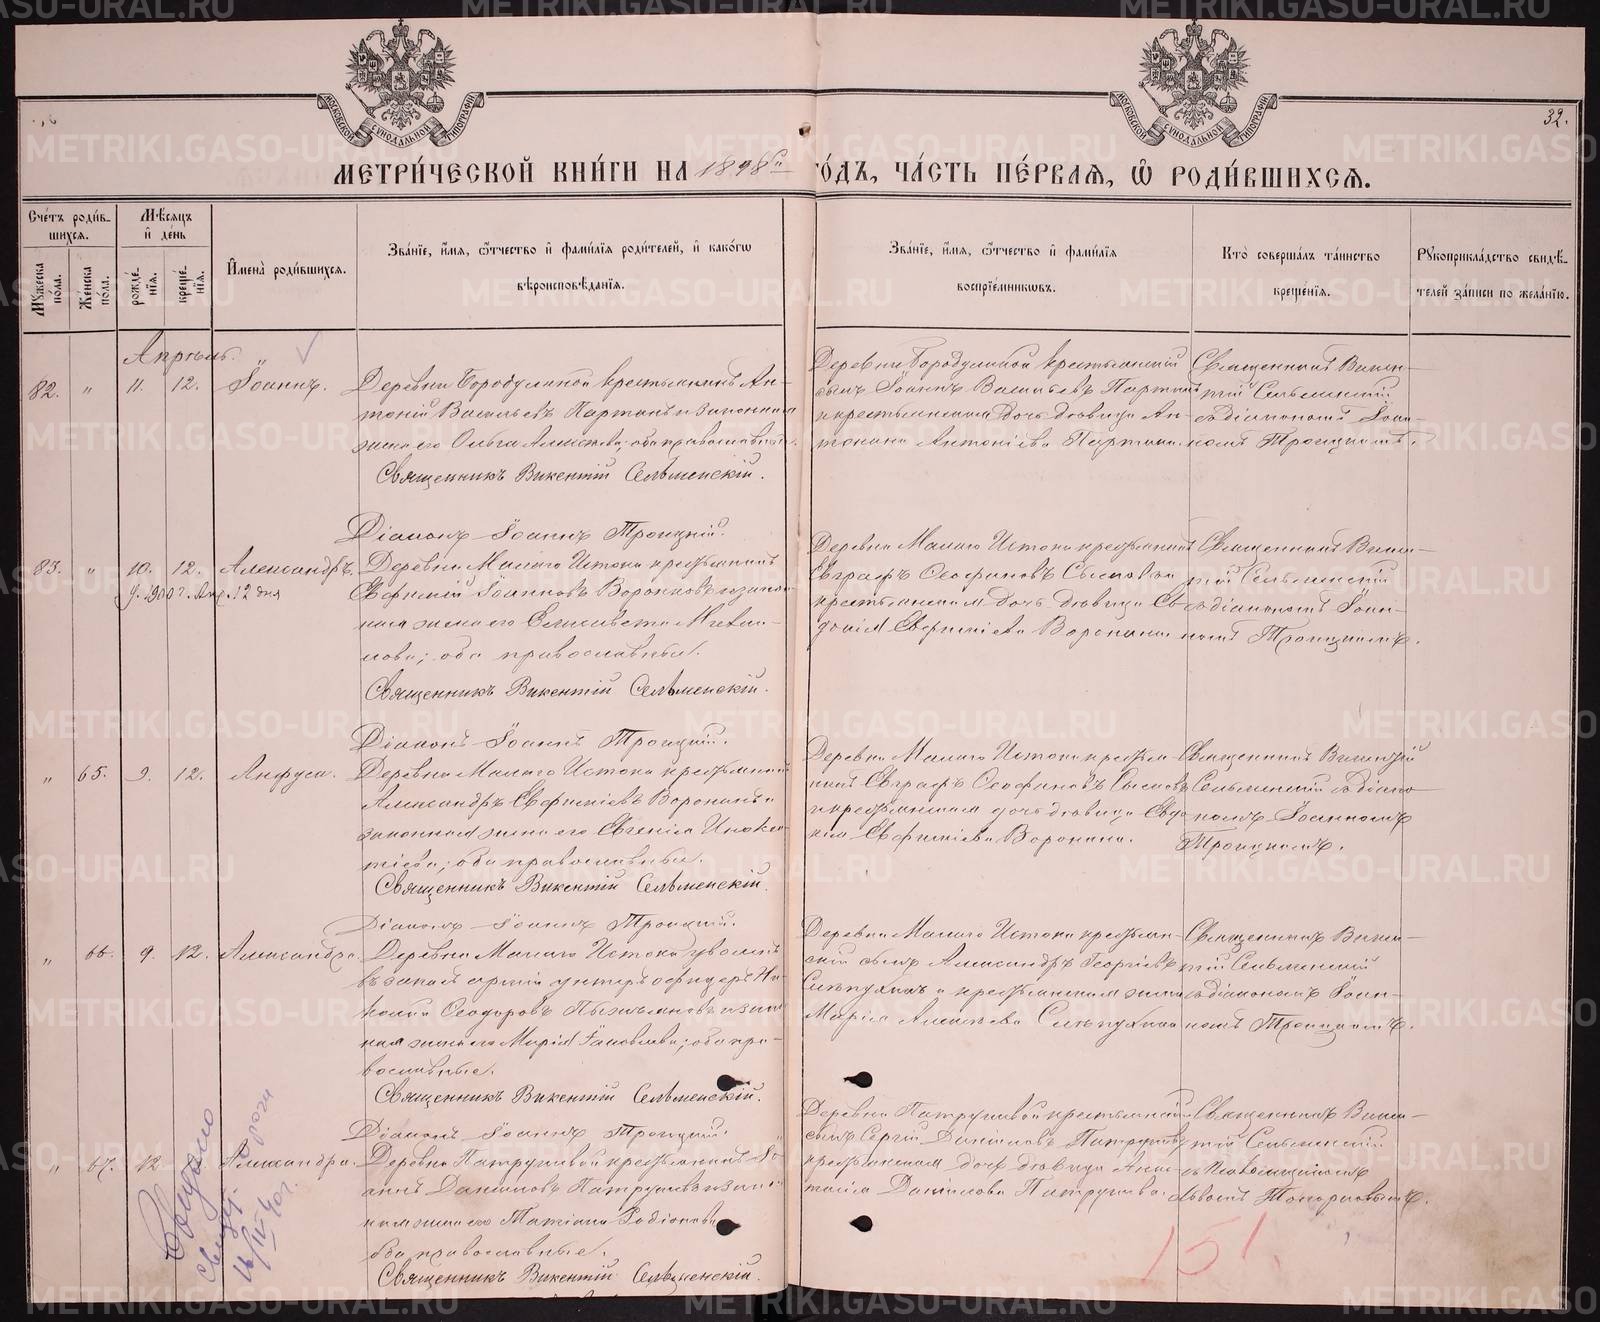 32.
МЕТРИ́ЧЕСКОЙ КНИ́ГИ НА 1898й ГО́ДЪ, ЧА́СТЬ ПЕ́РВАѦ, Ѡ РОДИ́ВШИХСѦ.
Сче́тъ роди́в-
шихсѧ.
Мꙋ́жеска по́ла.
Же́нска по́ла.
Мѣ́сѧцъ
и҆ де́нь
рожде́-
нїѧ.
креще́-
нїѧ.
И҆мена̀ роди́вшихсѧ.
Зва́нїе, и҆́мѧ, ѻ҆́тчество и҆ фами́лїѧ роди́телей, и҆ како́гѡ
вѣроисповѣ́данїѧ.
Зва́нїе, и҆́мѧ, ѻ҆́тчество и҆ фами́лїѧ
воспрїе́мникѡвъ.
Кто̀ соверша́лъ та́инство
креще́нїѧ.
Рꙋкоприкла́дство свидѣ́-
телей за́писи по жела́нїю.
Апрель.
82. " 11. 12. Іоаннъ.
Деревни Бородулиной крестьянинъ Ан-
тоній Васильевъ Партинъ и законная
жена его Ольга Алексѣева; оба православные.
Священникъ Викентій Сельменскій.
Діаконъ Іоаннъ Троицкій.
Деревни Бородулиной крестьянскій
сынъ Іоаннъ Васильевъ Партинъ
и крестьянская дочь дѣвица Ан-
тонина Антоніева Партина.
Священникъ Викен-
тій Сельменскій
съ діакономъ Іоан-
номъ Троицкимъ.
83. " 10. 12. Александръ.
У. 1900 г. Апр. 12 дня
Деревни Малаго Истока крестьянинъ
Евфимій Іоанновъ Воронковъ и закон-
ная жена его Елисавета
оба православные.
Священникъ Викентій Сельменскій.
Діаконъ Іоаннъ Троицкій.
Деревни Малаго Истока крестьянинъ
Евграфъ Ѳеофановъ и
крестьянская дочь дѣвица Ев-
докія Евфиміева Воронина
Священникъ Викен-
тій Сельменскій
съ діакономъ Іоан-
номъ Троицкимъ.
" 65. 9. 12. Анфуса.
Деревни Малаго Истока крестьянинъ
Александръ Евфиміевъ Воронинъ и
законная жена его Евгенія Инокен-
тіева; оба православные.
Священникъ Викентій Сельменскій.
Діаконъ Іоаннъ Троицкій.
Деревни Малаго Истока крестья-
нинъ Евграфъ Ѳеофановъ
и крестьянская дочь дѣвица Евдо-
кія Евфиміева Воронина.
Священникъ Викентій
Сельменскій съ діако-
номъ Іоанномъ
Троицкимъ.
" 66. 9. 12. Александра.
Деревни Малаго Истока уволен.
въ запасъ арміи унтеръ офицеръ Ни-
колай Ѳеодоровъ и закон-
ная жена его Марія Іаковлева; оба пра-
вославные.
Священникъ Викентій Сельменскій.
Діаконъ Іоаннъ Троицкій.
Деревни Малаго Истока крестьян-
скій сынъ Александръ Георгіевъ
и крестьянская жена
Марія Алексѣева
Священникъ Викен-
тій Сельменскій
съ діакономъ Іоан-
номъ Троицкимъ.
" 67. 12 Александра.
Деревни Патрушевой крестьянинъ Іо-
аннъ Даніиловъ Патрушевъ и закон-
ная жена его Татіана Родіонова
оба православные.
Священникъ Викентій Сельменскій.
Деревни Патрушевой крестьянскій
сынъ Сергій Даніиловъ Патрушевъ
крестьянская дочь дѣвица Анас-
тасія Даніилова Патрушева.
Священникъ Викен-
тій Сельменскій
съ псаломщикомъ
Топорковымъ.
151.